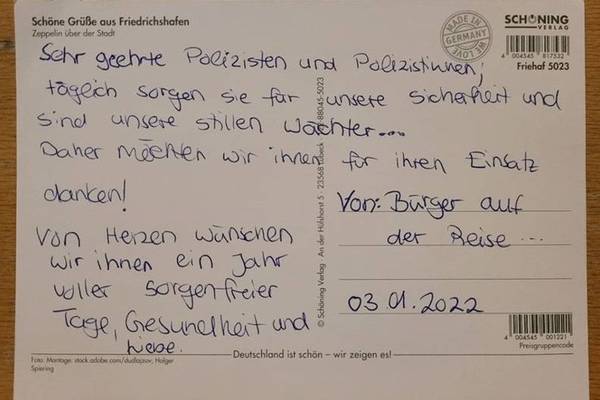 Schöne Grüße aus Friedrichshafen
Zeppelin über der Stadt
MADE IN
GERMANY
WE LOVE
SCHÖNING
VERLAG
4 004545 817532
Friehaf 5023
Sehr geehrte Polizisten und Polizistinnen,
täglich sorgen sie für unsere Sicherheit und
sind unsere stillen Wächter...
Daher möchten wir ihnen für ihren Einsatz
danken!
Von Herzen wünschen
wir ihnen ein Jahr
voller sorgenfreier
Tage, Gesundheit und
Liebe.
© Schöning Verlag · An der Hülshorst 5 · 23568 Lübeck 88045-5023
Von: Bürger auf
der Reise...
03.01.2022
4 004545 001221
Preisgruppencode
Deutschland ist schön – wir zeigen es!
Foto: Montage: stock.adobe.com/ Holger
Spiering